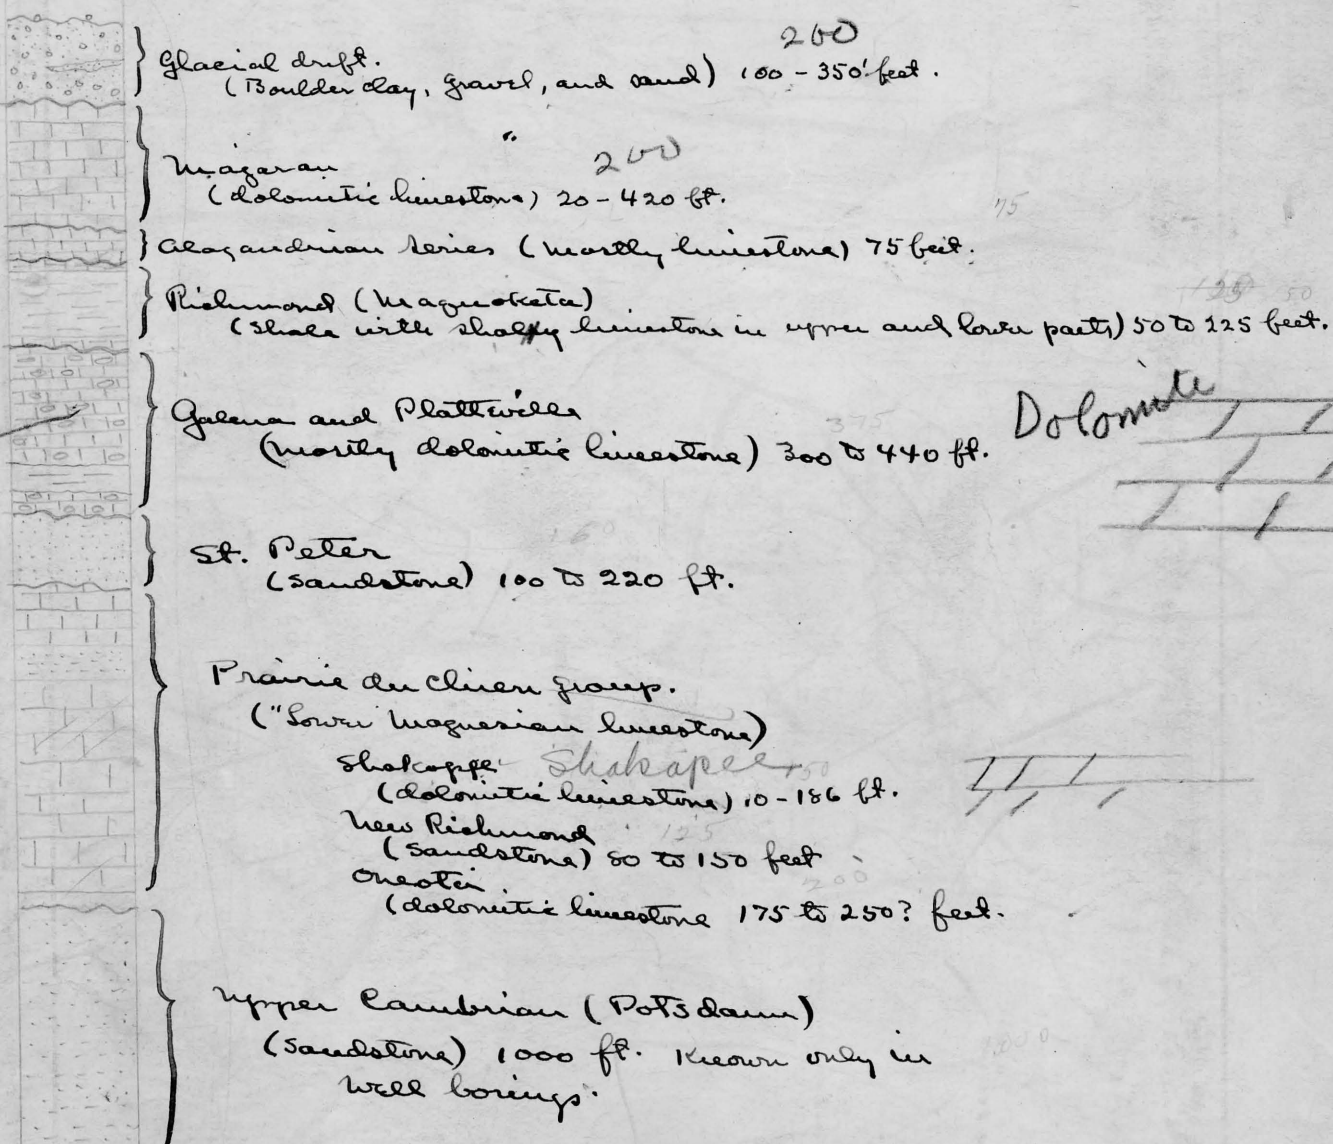 200
Glacial drift.
(Boulder clay, gravel, and sand) 100 - 350' feet.
Niagaran 200
(dolomitic limestone) 20 - 420 ft.
75
Alexandrian series (mostly limestone) 75 feet.
125 50
Richmond (Maquoketa)
(shale with shaly limestone in upper and lower parts) 50 to 225 feet.
Dolomite
Galena and Platteville 375
(mostly dolomitic limestone) 300 to 440 ft.
160
St. Peter
(sandstone) 100 to 220 ft.
Prairie du Chien group.
("Lower Magnesian limestone)
Shakopee Shakapee 150
(dolomitic limestone) 10 - 186 ft.
New Richmond 125
(sandstone) 80 to 150 feet
Oneota 200
(dolomitic limestone 175 to 250? feet.
Upper Cambrian (Potsdam)
(sandstone) 1000 ft. Known only in
well borings.